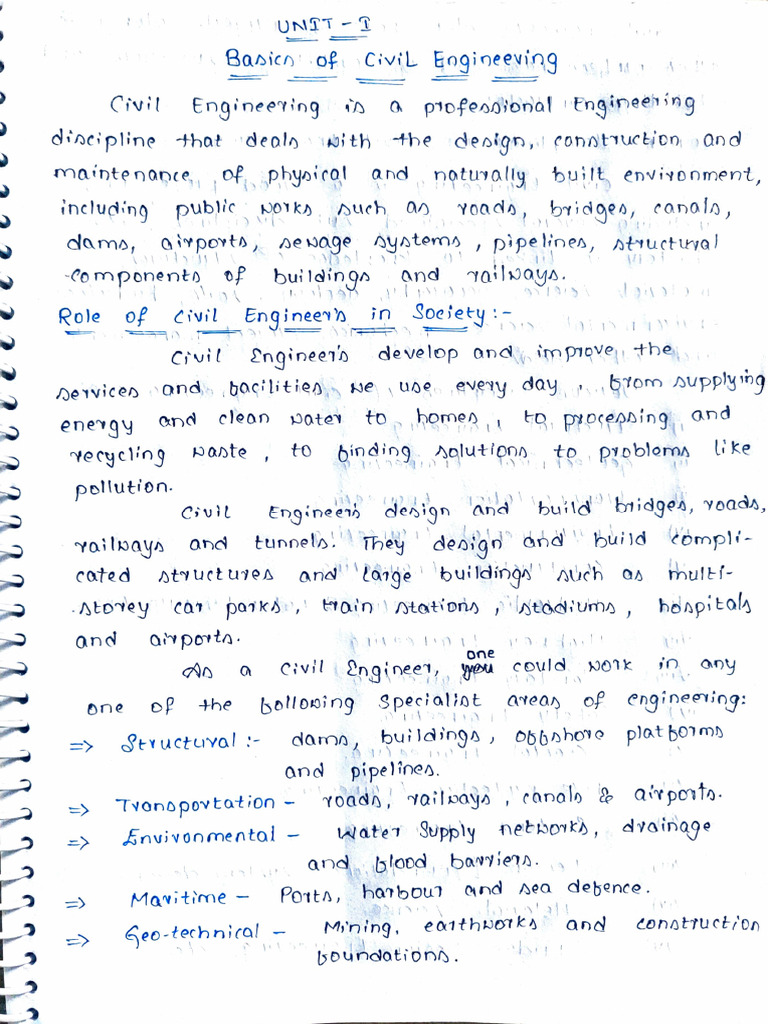 UNIT - I
Basics of Civil Engineering
Civil Engineering is a professional Engineering
discipline that deals with the design, construction and
maintenance of physical and naturally built environment,
including public works such as roads, bridges, canals,
dams, airports, sewage systems, pipelines, structural
components of buildings and railways.
Role of Civil Engineers in Society:-
Civil Engineer's develop and improve the
services and facilities we use every day, from supplying
energy and clean water to homes, to processing and
recycling waste, to finding solutions to problems like
pollution.
Civil Engineer's design and build bridges, roads,
railways and tunnels. They design and build compli-
cated structures and large buildings such as multi-
storey car parks, train stations, stadiums, hospitals
and airports.
As a Civil Engineer, one could work in any
one of the following Specialist areas of engineering:
=> Structural :- dams, buildings, offshore platforms
and pipelines.
=> Transportation - roads, railways, canals & airports.
=> Environmental - Water Supply networks, drainage
and flood barriers.
=> Maritime - Ports, harbour and sea defence.
=> Geo-technical - Mining, earthworks and construction
foundations.